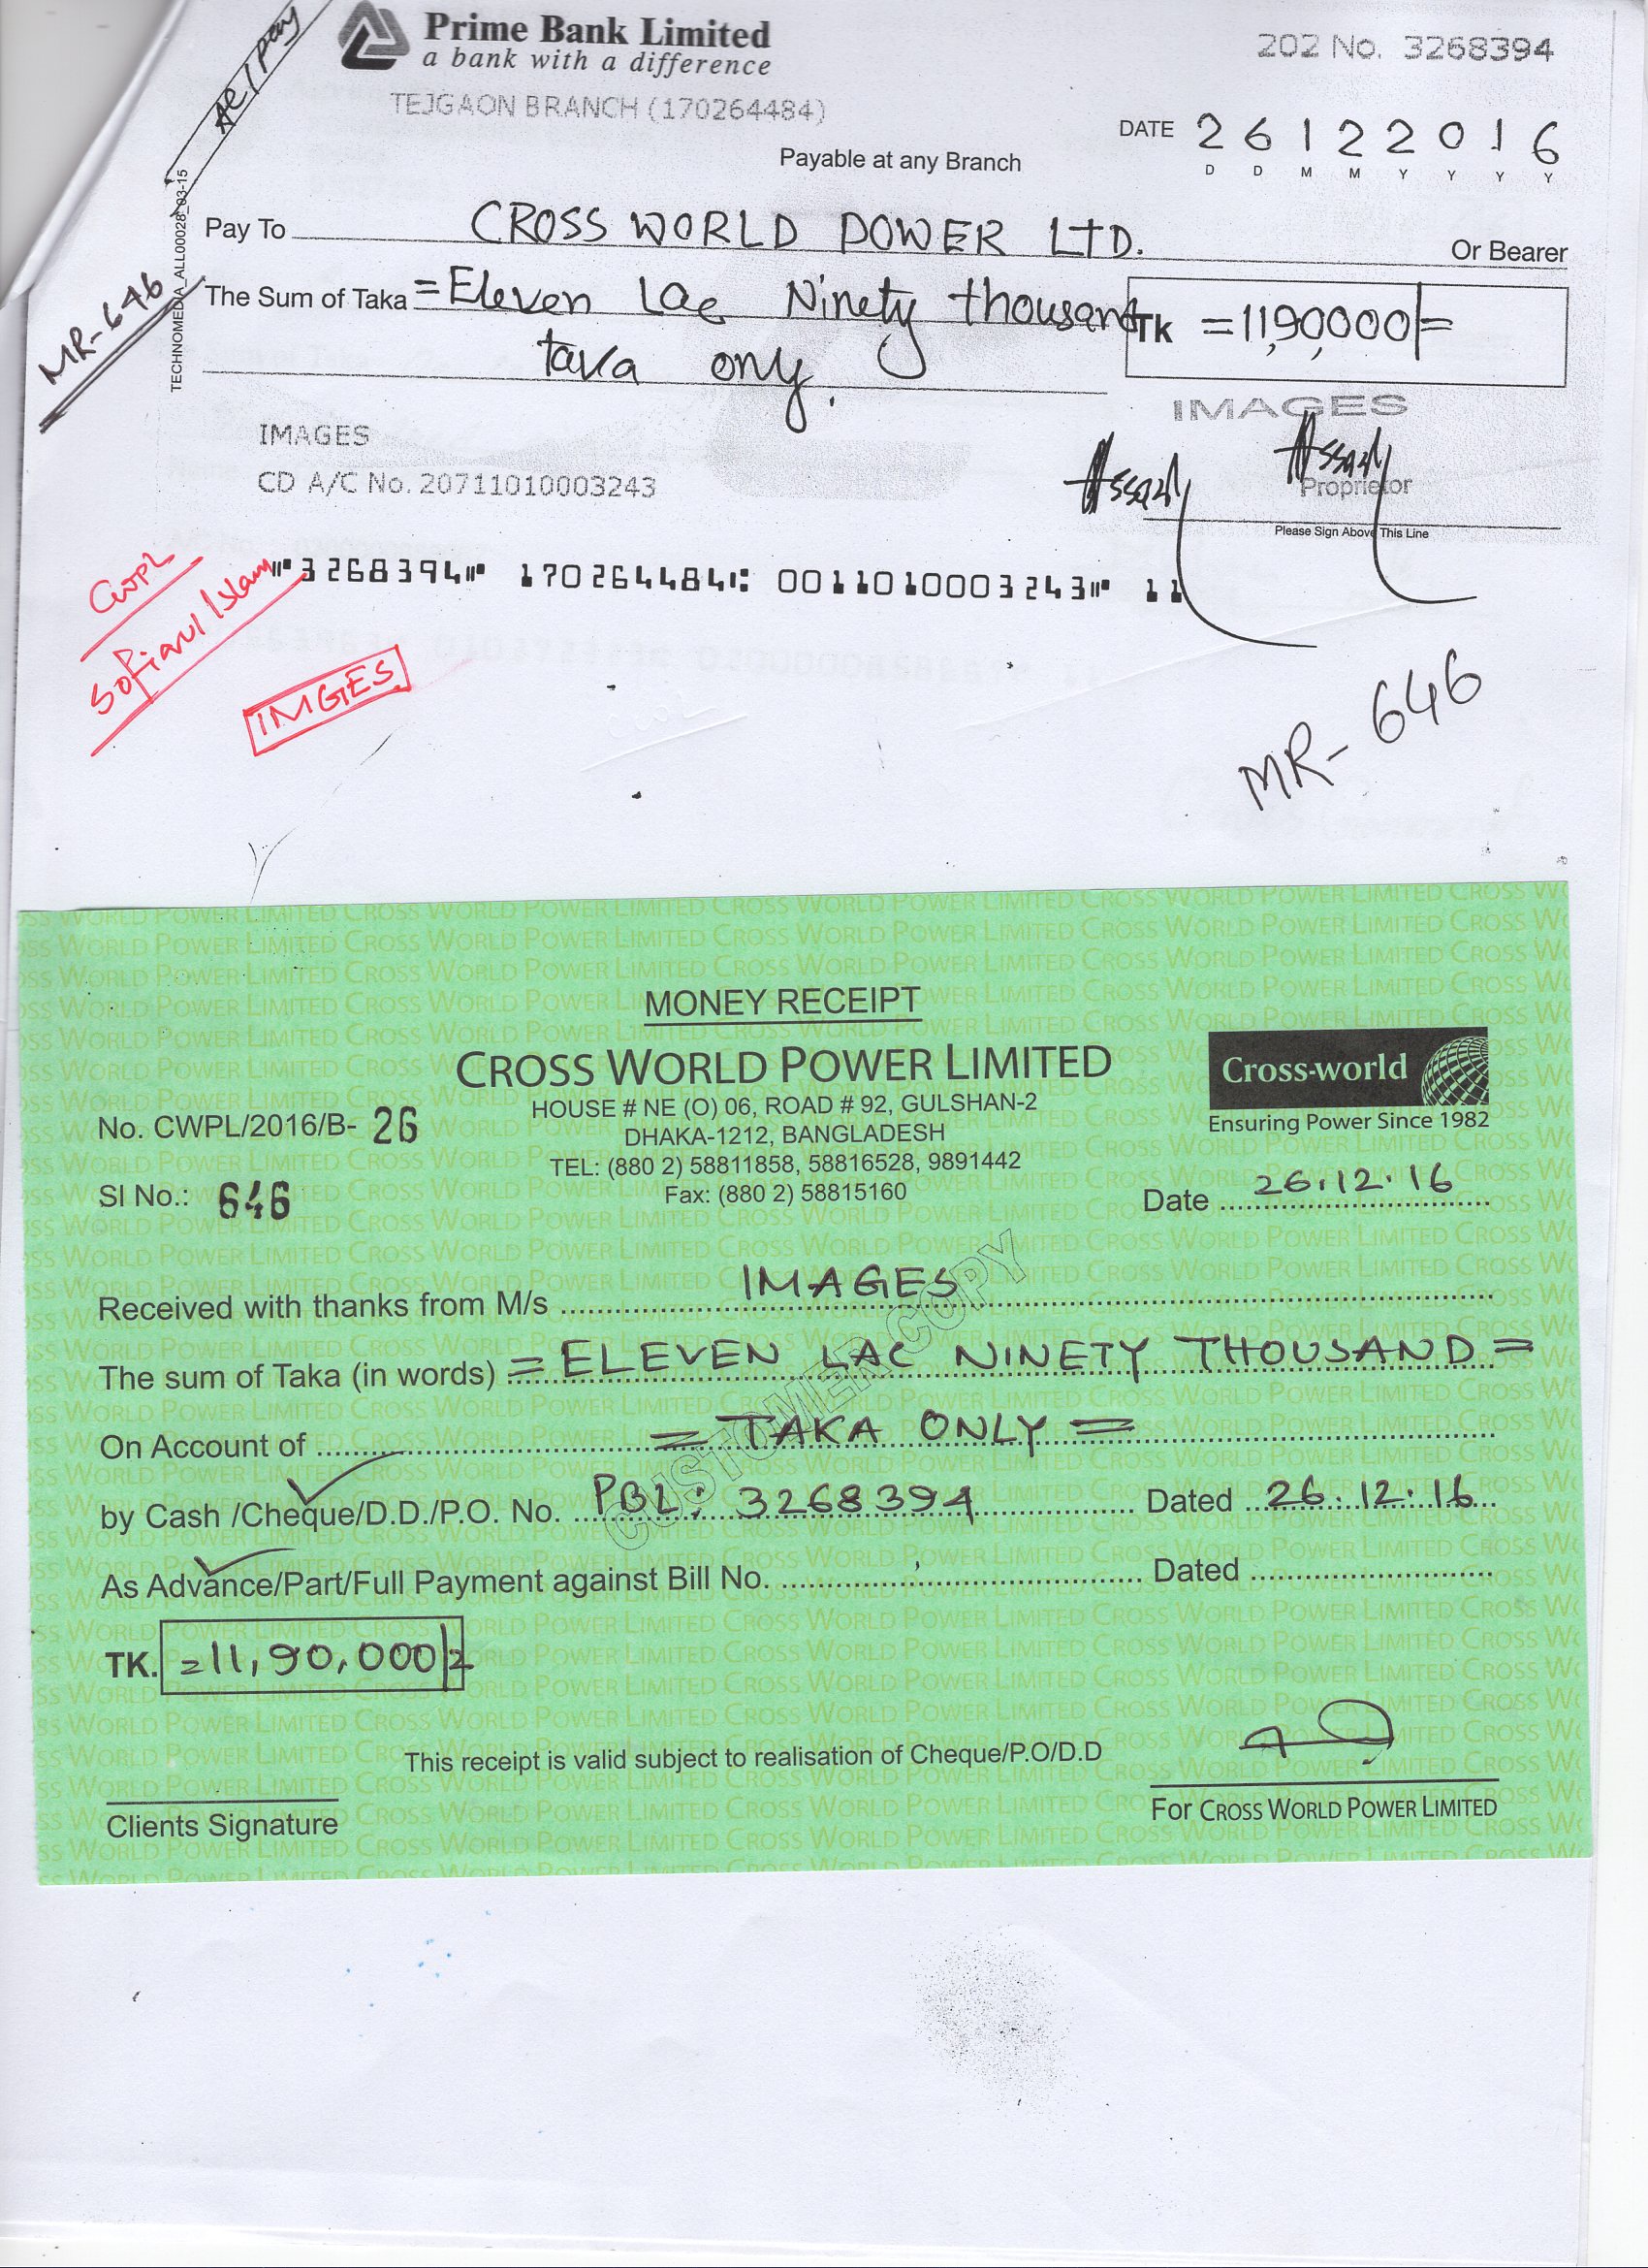 Ac/pay
Prime Bank Limited
a bank with a difference
202 No. 3268394
TEJGAON BRANCH (170264484)
DATE 2 6 1 2 2 0 1 6
D D M M Y Y Y Y
Payable at any Branch
TECHNOMEDIA_ALL00028_03-15
Pay To CROSS WORLD POWER LTD. Or Bearer
MR-646
The Sum of Taka =Eleven Lac Ninety thousand TK =11,90,000/=
taka only.
IMAGES
IMAGES
CD A/C No. 20711010003243
Proprietor
Please Sign Above This Line
⑈3268394⑈ 170264484⑆ 0011010003243⑈ 11
CWPL
Sofiarul Islam
IMGES
MR-646
MONEY RECEIPT
CROSS WORLD POWER LIMITED
Cross-world
Ensuring Power Since 1982
HOUSE # NE (O) 06, ROAD # 92, GULSHAN-2
No. CWPL/2016/B- 26
DHAKA-1212, BANGLADESH
TEL: (880 2) 58811858, 58816528, 9891442
Sl No.: 646
Fax: (880 2) 58815160
Date 26.12.16
Received with thanks from M/s IMAGES
The sum of Taka (in words) =ELEVEN LAC NINETY THOUSAND=
On Account of =TAKA ONLY=
by Cash /Cheque/D.D./P.O. No. PBL: 3268394 Dated 26.12.16
As Advance/Part/Full Payment against Bill No. Dated
CUSTOMER COPY
TK. =11,90,000/=
This receipt is valid subject to realisation of Cheque/P.O/D.D
Clients Signature
For CROSS WORLD POWER LIMITED